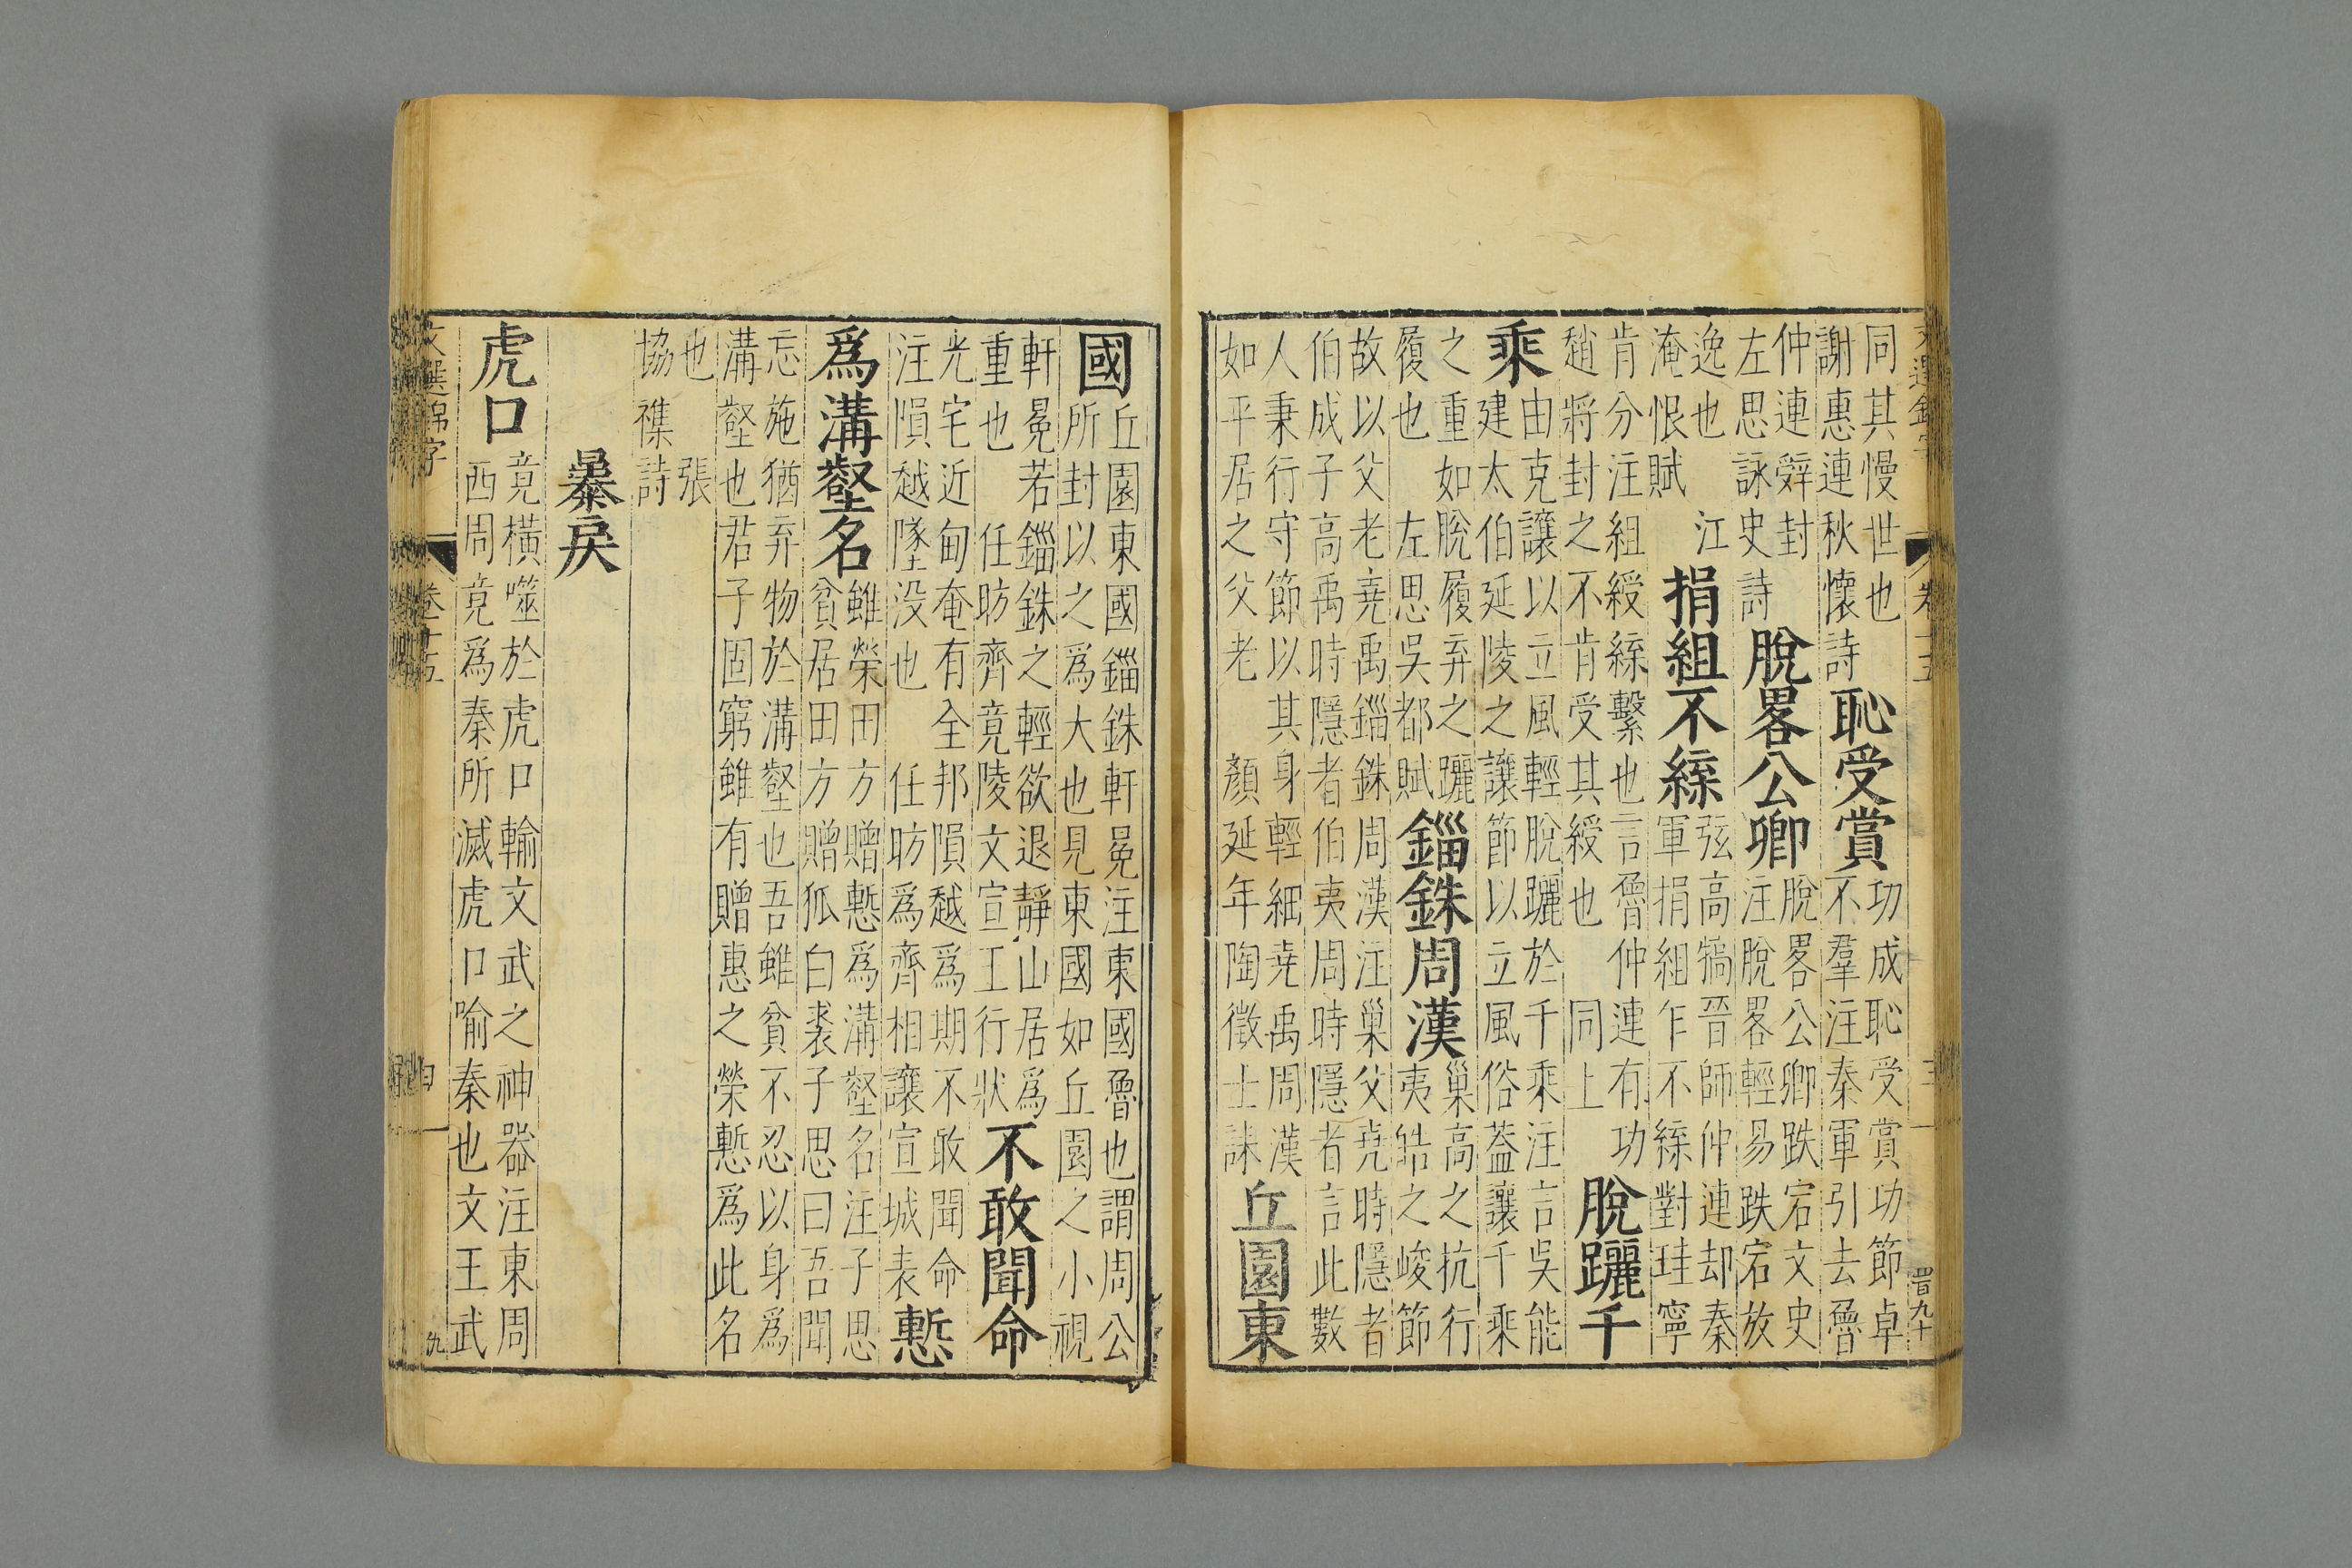 同其慢世也
謝惠連秋懷詩
恥受賞
功成恥受賞功節卓
不羣注秦軍引去魯
仲連辤封
左思詠史詩
脫畧公卿
脫畧公卿跌宕文史
注脫畧輕易跌宕放
逸也 江
淹恨賦
捐組不緤
弦高犒晉師仲連却秦
軍捐組乍不緤對珪寧
肯分注組綬緤繫也言魯仲連有功
趙將封之不肯受其綬也 同上
脫躧千
乘
由克讓以立風輕脫躧於千乘注言吳能
建太伯延陵之讓節以立風俗葢讓千乘
之重如脫履弃之躧
履也 左思吳都賦
錙銖周漢
巢高之抗行
夷皓之峻節
故以父老堯禹錙銖周漢注巢父堯時隱者
伯成子高禹時隱者伯夷周時隱者言此數
人秉行守節以其身輕細堯禹周漢
如平居之父老 顏延年陶徵士誄
丘園東
國
丘園東國錙銖軒冕注東國魯也謂周公
所封以之爲大也見東國如丘園之小視
軒冕若錙銖之輕欲退靜山居爲
重也 任昉齊竟陵文宣王行狀
不敢聞命
光宅近甸奄有全邦隕越爲期不敢聞命
注隕越墜没也 任昉爲齊相讓宣城表
慙
爲溝壑名
雖榮田方贈慙爲溝壑名注子思
貧居田方贈狐白裘子思曰吾聞
忘施猶弃物於溝壑也吾雖貧不忍以身爲
溝壑也君子固窮雖有贈惠之榮慙爲此名
也 張
協襍詩
暴戾
虎口
竟橫噬於虎口輸文武之神器注東周
西周竟爲秦所滅虎口喻秦也文王武
文選錦字
卷十五
九